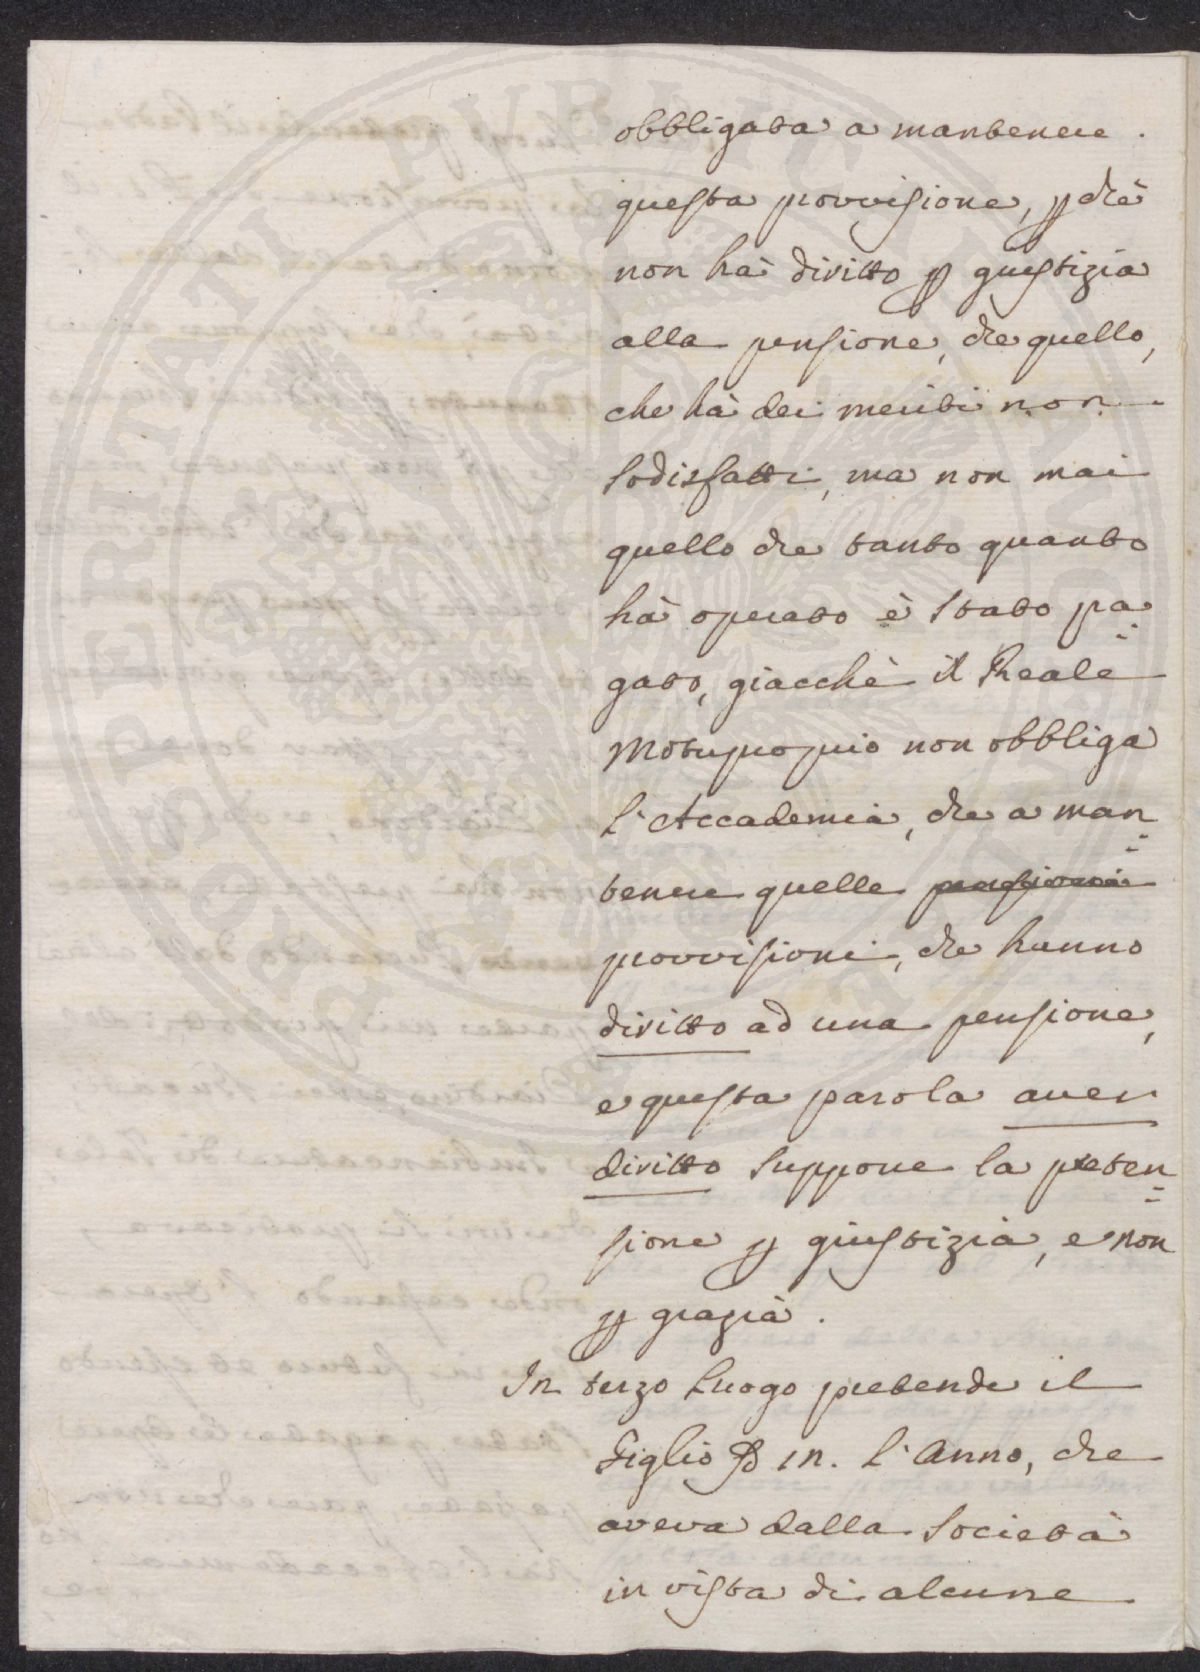 obbligata a mantenere
questa provvisione, p chè
non hà diritto p giustizia
alla pensione, che quello,
che hà dei meriti non
sodisfatti, ma non mai
quello che tanto quanto
hà operato è stato pa=
gato, giacchè il Reale
Motuproprio non obbliga
l'Accademia, che a man=
tenere quelle pensioni
provvisioni, che hanno
diritto ad una pensione,
e questa parola aver
diritto suppone la preten=
sione p giustizia, e non
p grazia.
In terzo luogo pretende il
Figlio l'Anno, che
aveva dalla Società
in vista di alcune